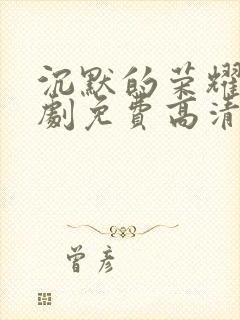 沉默的荣耀
劇免費高清
曾彦